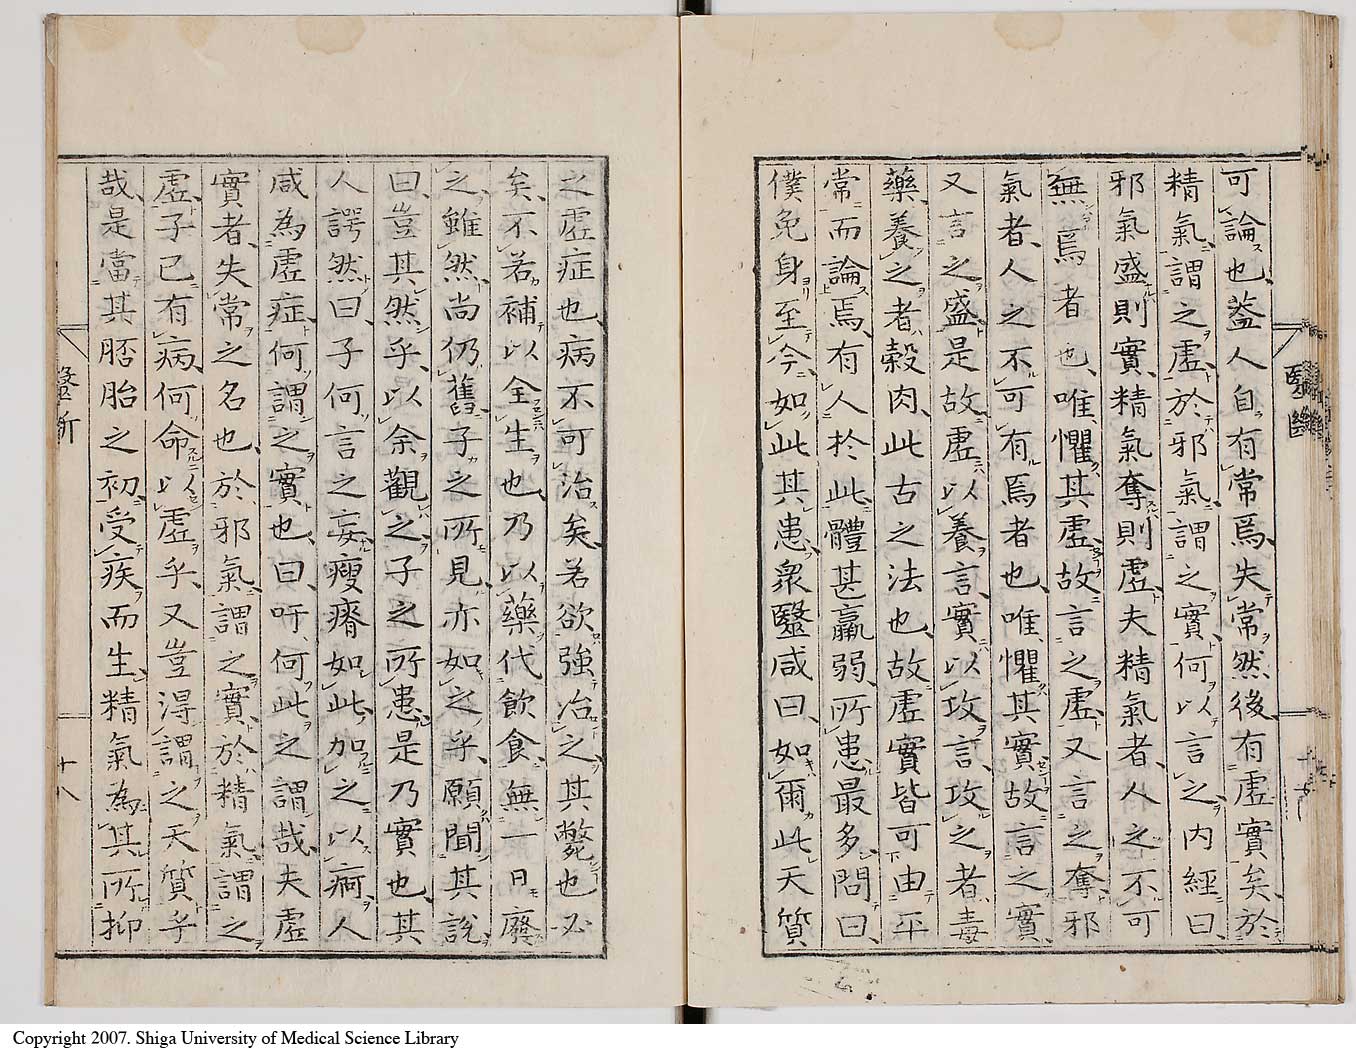 可論也、蓋人自有常焉、失常然後有虛實矣、於
精氣謂之虛、於邪氣謂之實、何以言之、內經曰、
邪氣盛則實、精氣奪則虛、夫精氣者、人之不可
無焉者也、唯懼其虛、故言之虛、又言之奪、邪
氣者、人之不可有焉者也、唯懼其實、故言之實、
又言之盛、是故虛以養言、實以攻言、攻之者、毒
藥、養之者、穀肉、此古之法也、故虛實皆可由平
常而論焉、有人於此、體甚羸弱、所患最多、問曰、
僕免身至今、如此其患、衆醫咸曰、如爾此天質
之虛症也、病不可治矣、若欲強治之、其斃也必
矣、不若補以全生也、乃以藥代飲食、無一日廢
之、雖然、尚仍舊、子之所見、亦如之乎、願聞其說、
曰、豈其然乎、以余觀之、子之所患、是乃實也、其
人諤然曰、子何言之妄、瘦瘠如此、加之以痾、人
咸為虛症、何謂之實也、曰、吁、何此之謂哉、夫虛
實者、失常之名也、於邪氣、謂之實、於精氣、謂之
虛、子已有病、何命以虛乎、又豈得謂之天質乎
哉、是當其胚胎之初、受疾而生、精氣為其所抑
醫斷
十八
Copyright 2007. Shiga University of Medical Science Library